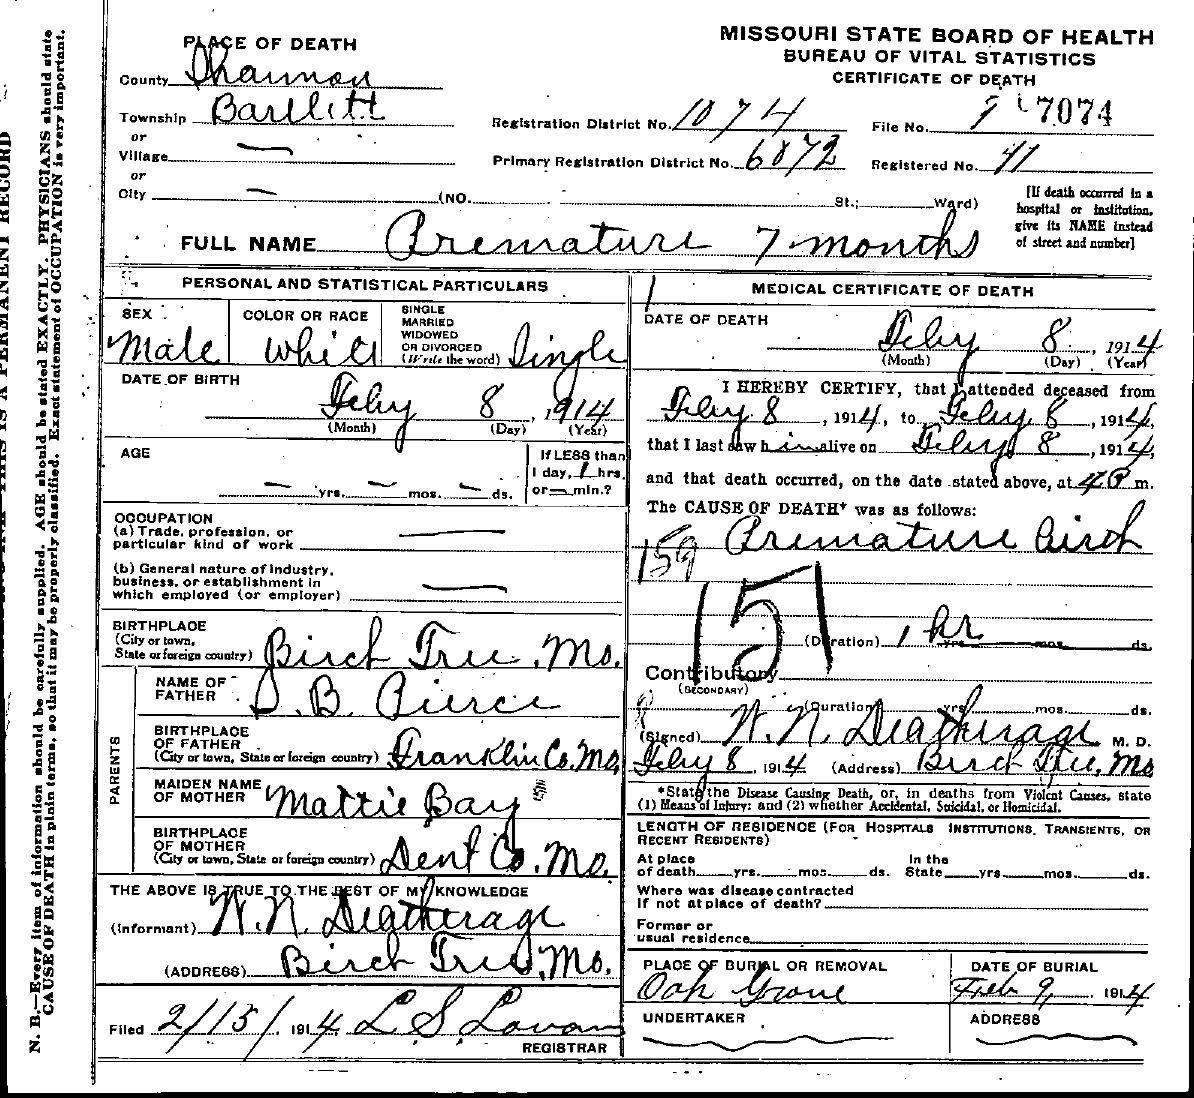 MISSOURI STATE BOARD OF HEALTH
BUREAU OF VITAL STATISTICS
CERTIFICATE OF DEATH
PLACE OF DEATH
County Shannon
Township Bartlett
or
Village —
or
City — (NO. St.; Ward)
Registration District No. 1074
File No. 7074
Primary Registration District No. 6872
Registered No. 41
[If death occurred in a
hospital or institution,
give its NAME instead
of street and number]
FULL NAME Premature 7 months
PERSONAL AND STATISTICAL PARTICULARS
SEX
Male
COLOR OR RACE
White
SINGLE
MARRIED
WIDOWED
OR DIVORCED
(Write the word) Single
DATE OF BIRTH
Feby 8, 1914
(Month) (Day) (Year)
AGE
— yrs. — mos. — ds.
If LESS than
1 day, 1 hrs.
or — min.?
OCCUPATION
(a) Trade, profession, or
particular kind of work —
(b) General nature of Industry,
business, or establishment in
which employed (or employer) —
BIRTHPLACE
(City or town,
State or foreign country) Birch Tree, Mo.
PARENTS
NAME OF
FATHER S. B. Pierce
BIRTHPLACE
OF FATHER
(City or town, State or foreign country) Franklin Co. Mo,
MAIDEN NAME
OF MOTHER Mattie Bay
BIRTHPLACE
OF MOTHER
(City or town, State or foreign country) Dent Co. Mo.
THE ABOVE IS TRUE TO THE BEST OF MY KNOWLEDGE
(Informant) W. N. Deatherage
(ADDRESS) Birch Tree, Mo.
Filed 2/15/ 1914 L S Lovan
REGISTRAR
MEDICAL CERTIFICATE OF DEATH
DATE OF DEATH
Feby 8, 1914
(Month) (Day) (Year)
I HEREBY CERTIFY, that I attended deceased from
Feby 8, 1914, to Feby 8, 1914,
that I last saw him alive on Feby 8, 1914,
and that death occurred, on the date stated above, at 4 P m.
The CAUSE OF DEATH* was as follows:
Premature Birth
159
151
(Duration) 1 hr yrs. mos. ds.
Contributory
(SECONDARY)
(Duration) yrs. mos. ds.
(Signed) W. N. Deatherage M. D.
Feby 8, 1914 (Address) Birch Tree, Mo
*State the Disease Causing Death, or, in deaths from Violent Causes, state
(1) Means of Injury; and (2) whether Accidental, Suicidal, or Homicidal.
LENGTH OF RESIDENCE (FOR HOSPITALS INSTITUTIONS, TRANSIENTS, OR
RECENT RESIDENTS)
At place
of death yrs. mos. ds.
In the
State yrs. mos. ds.
Where was disease contracted
If not at place of death?
Former or
usual residence
PLACE OF BURIAL OR REMOVAL
Oak Grove
DATE OF BURIAL
Feb 9, 1914
UNDERTAKER
ADDRESS
N. B.—Every item of information should be carefully supplied. AGE should be stated EXACTLY. PHYSICIANS should state
CAUSE OF DEATH in plain terms, so that it may be properly classified. Exact statement of OCCUPATION is very important.
THIS IS A PERMANENT RECORD